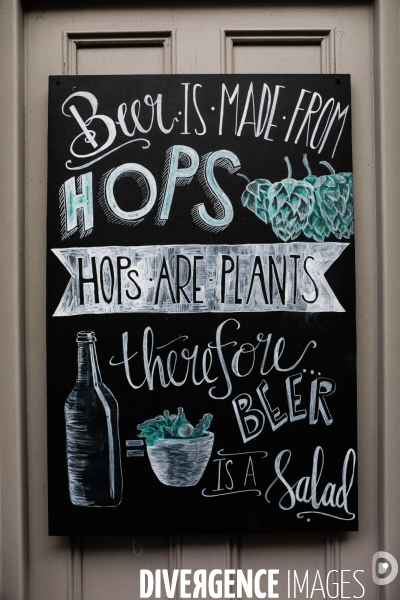 Beer·IS·MADE·FROM
HOPS
HOPS·ARE·PLANTS
therefore...
BEER
=
IS A Salad
DIVERGENCE IMAGES